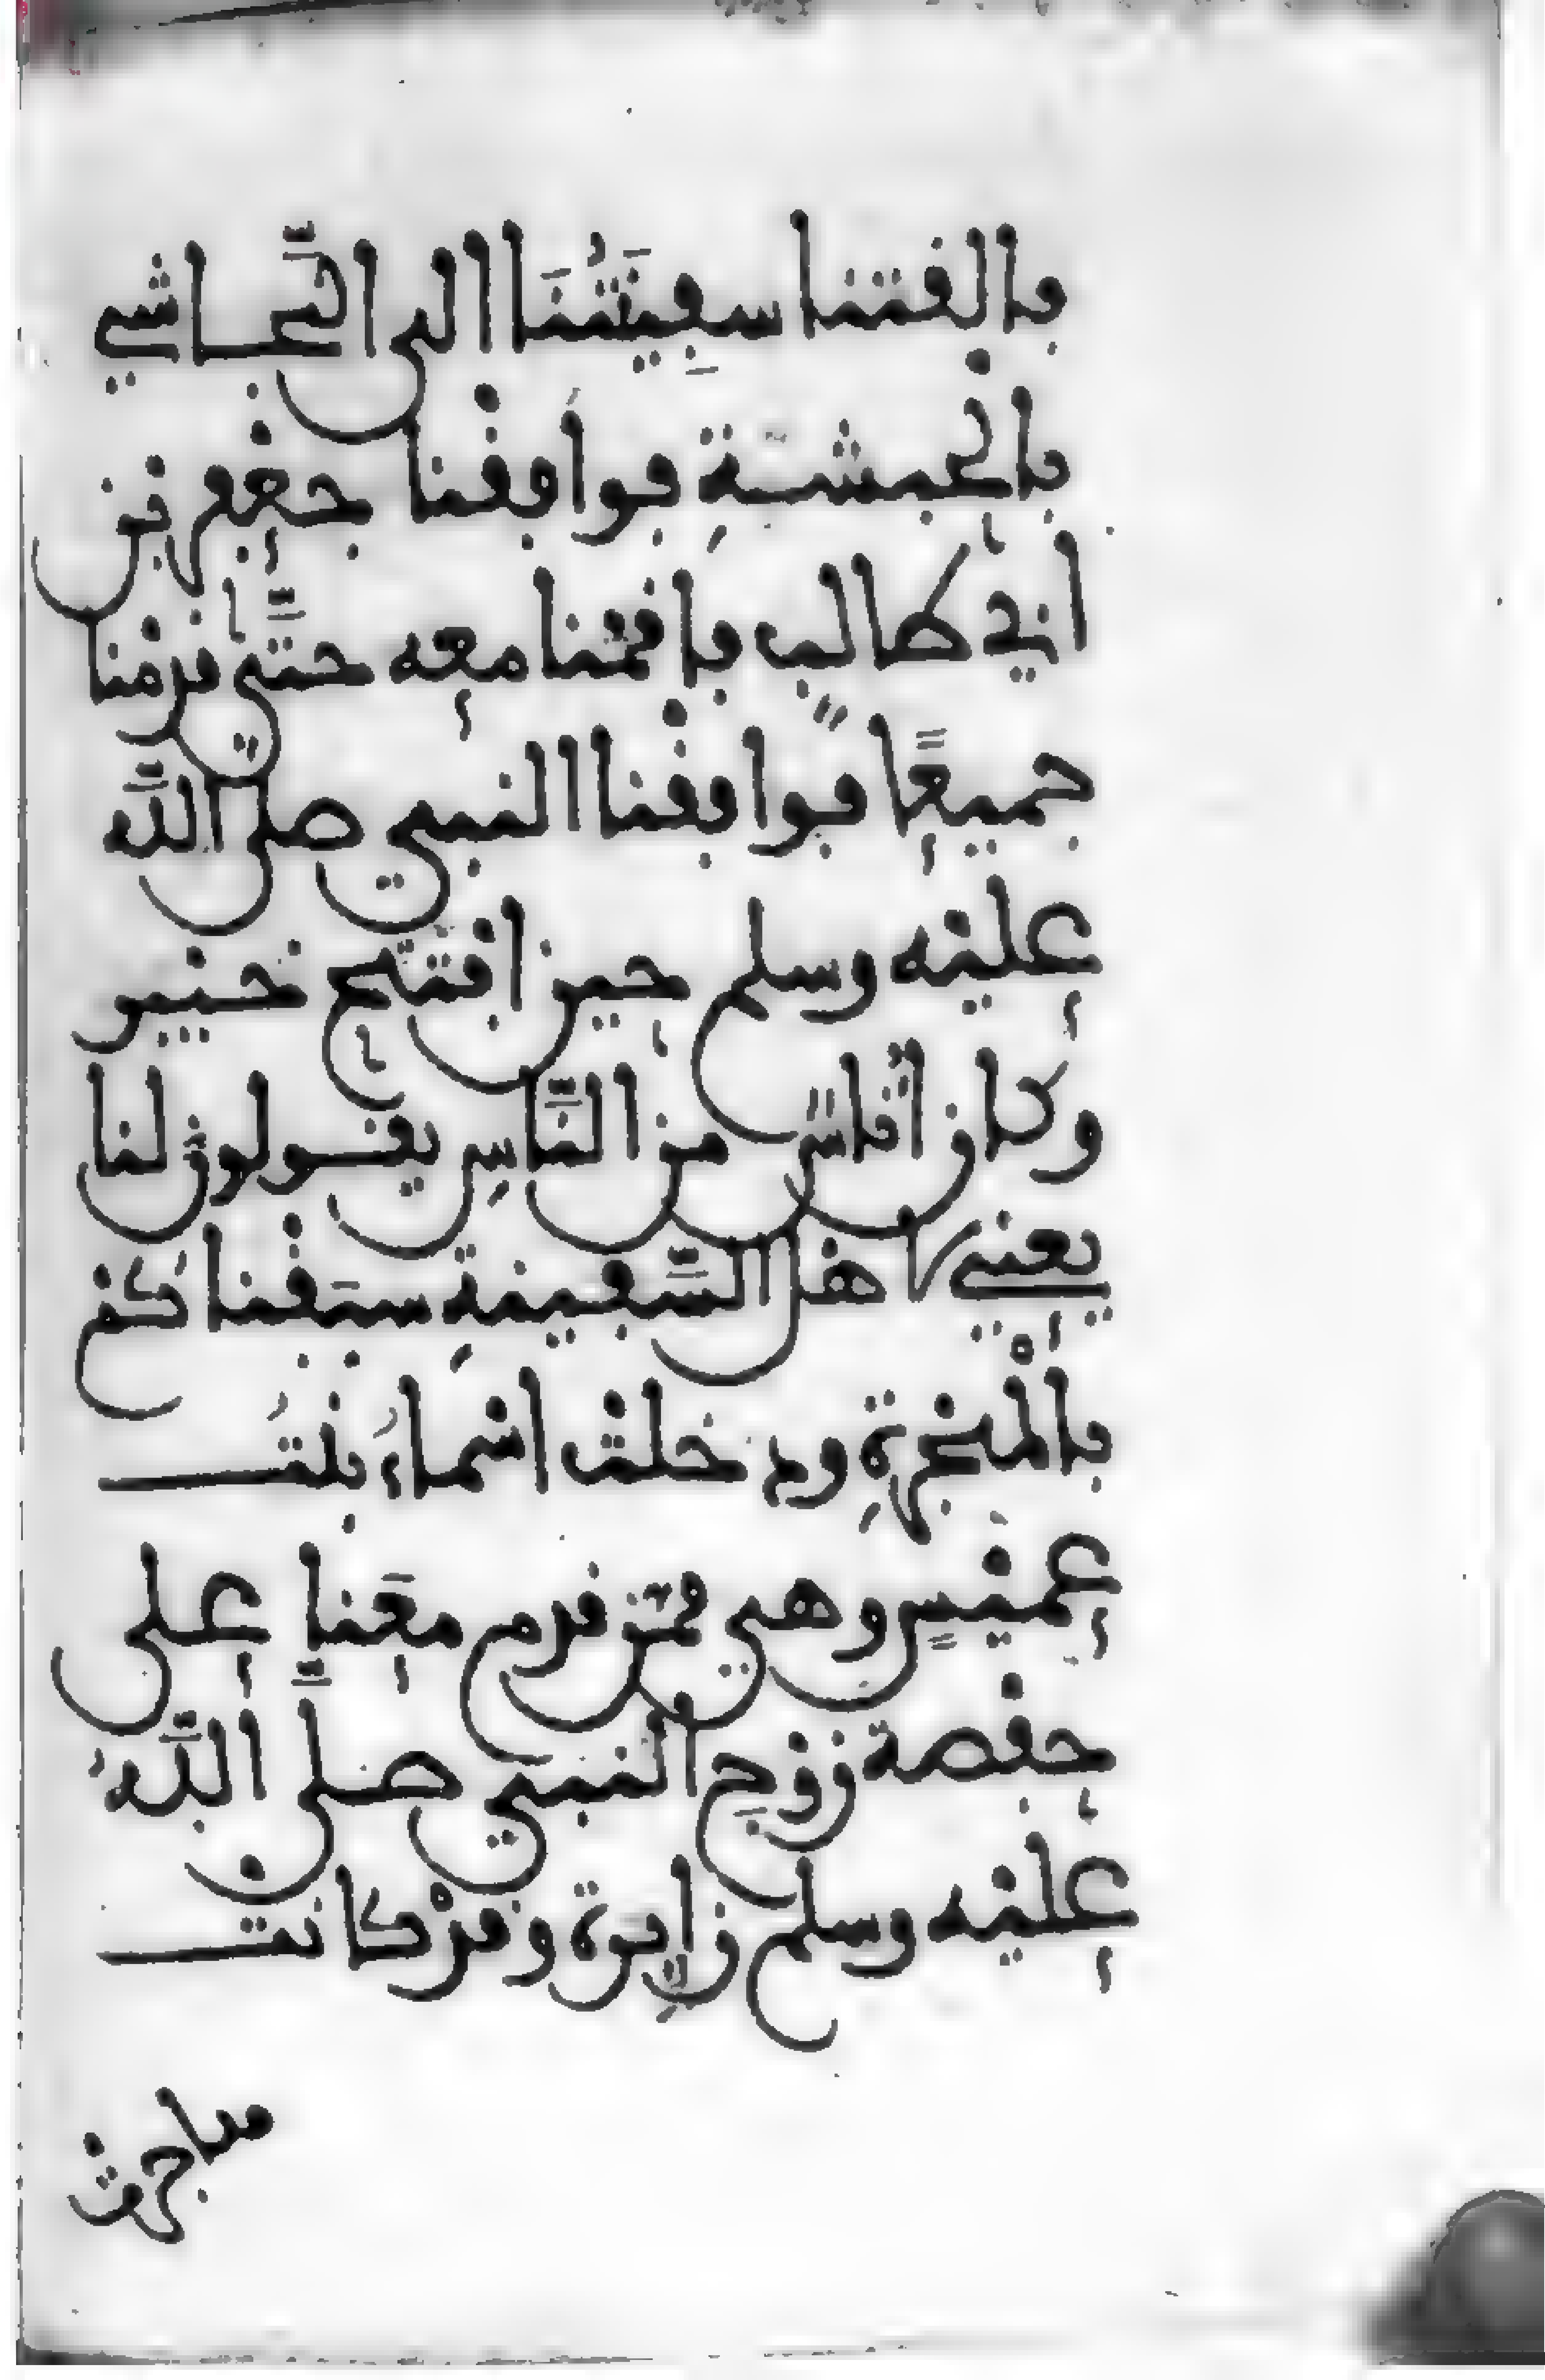 فالفتنا سفِينَتُنَا الى النَّجاشي
فالحبشةِ فوافقْنا جعْفر بن
ابي طالبٍ فاقمْنا معه حتَّى قدِمْنا
جميعًا فوافقْنا النبي صلى اللَّه
عليْه وسلم حين افتتح خيبر
وكان أناسٌ من النَّاسِ يقولون لنا
يعني لاهل السَّفينةِ سبَقْنا كم
بالْهجْرةِ ودخلتْ اسْماءُ بنتُ
عميْسٍ وهي ممَّن قدم معَنا على
حفْصة زوْجِ النبي صلَّى اللَّهُ
عليْه وسلم زايِرة وقدْ كانت
هاجرتْ